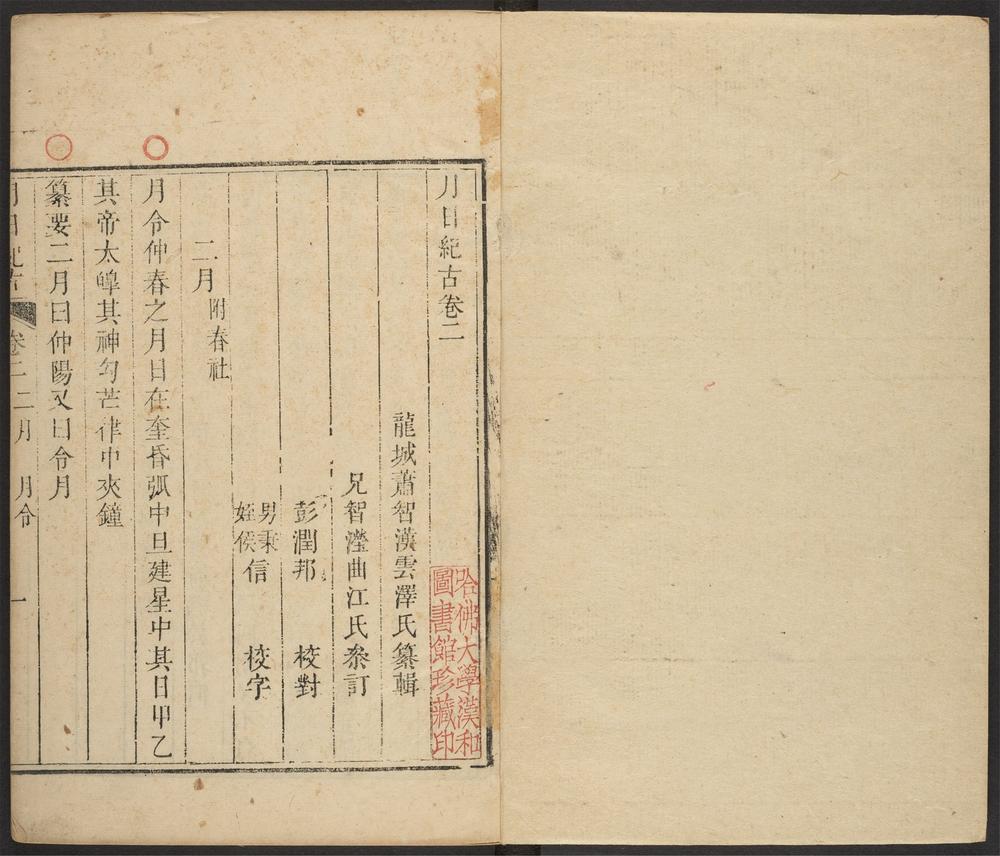 月日紀古卷二
龍城蕭智漢雲澤氏纂輯
兄智瀅曲江氏叅訂
彭潤邦 校對
男秉
姪侯信 校字
二月附春社
月令仲春之月日在奎昏弧中旦建星中其日甲乙
其帝太皥其神勾芒律中夾鐘
纂要二月曰仲陽又曰令月
月日紀古 卷二 二月 月令 一
哈佛大學漢和
圖書館珍藏印